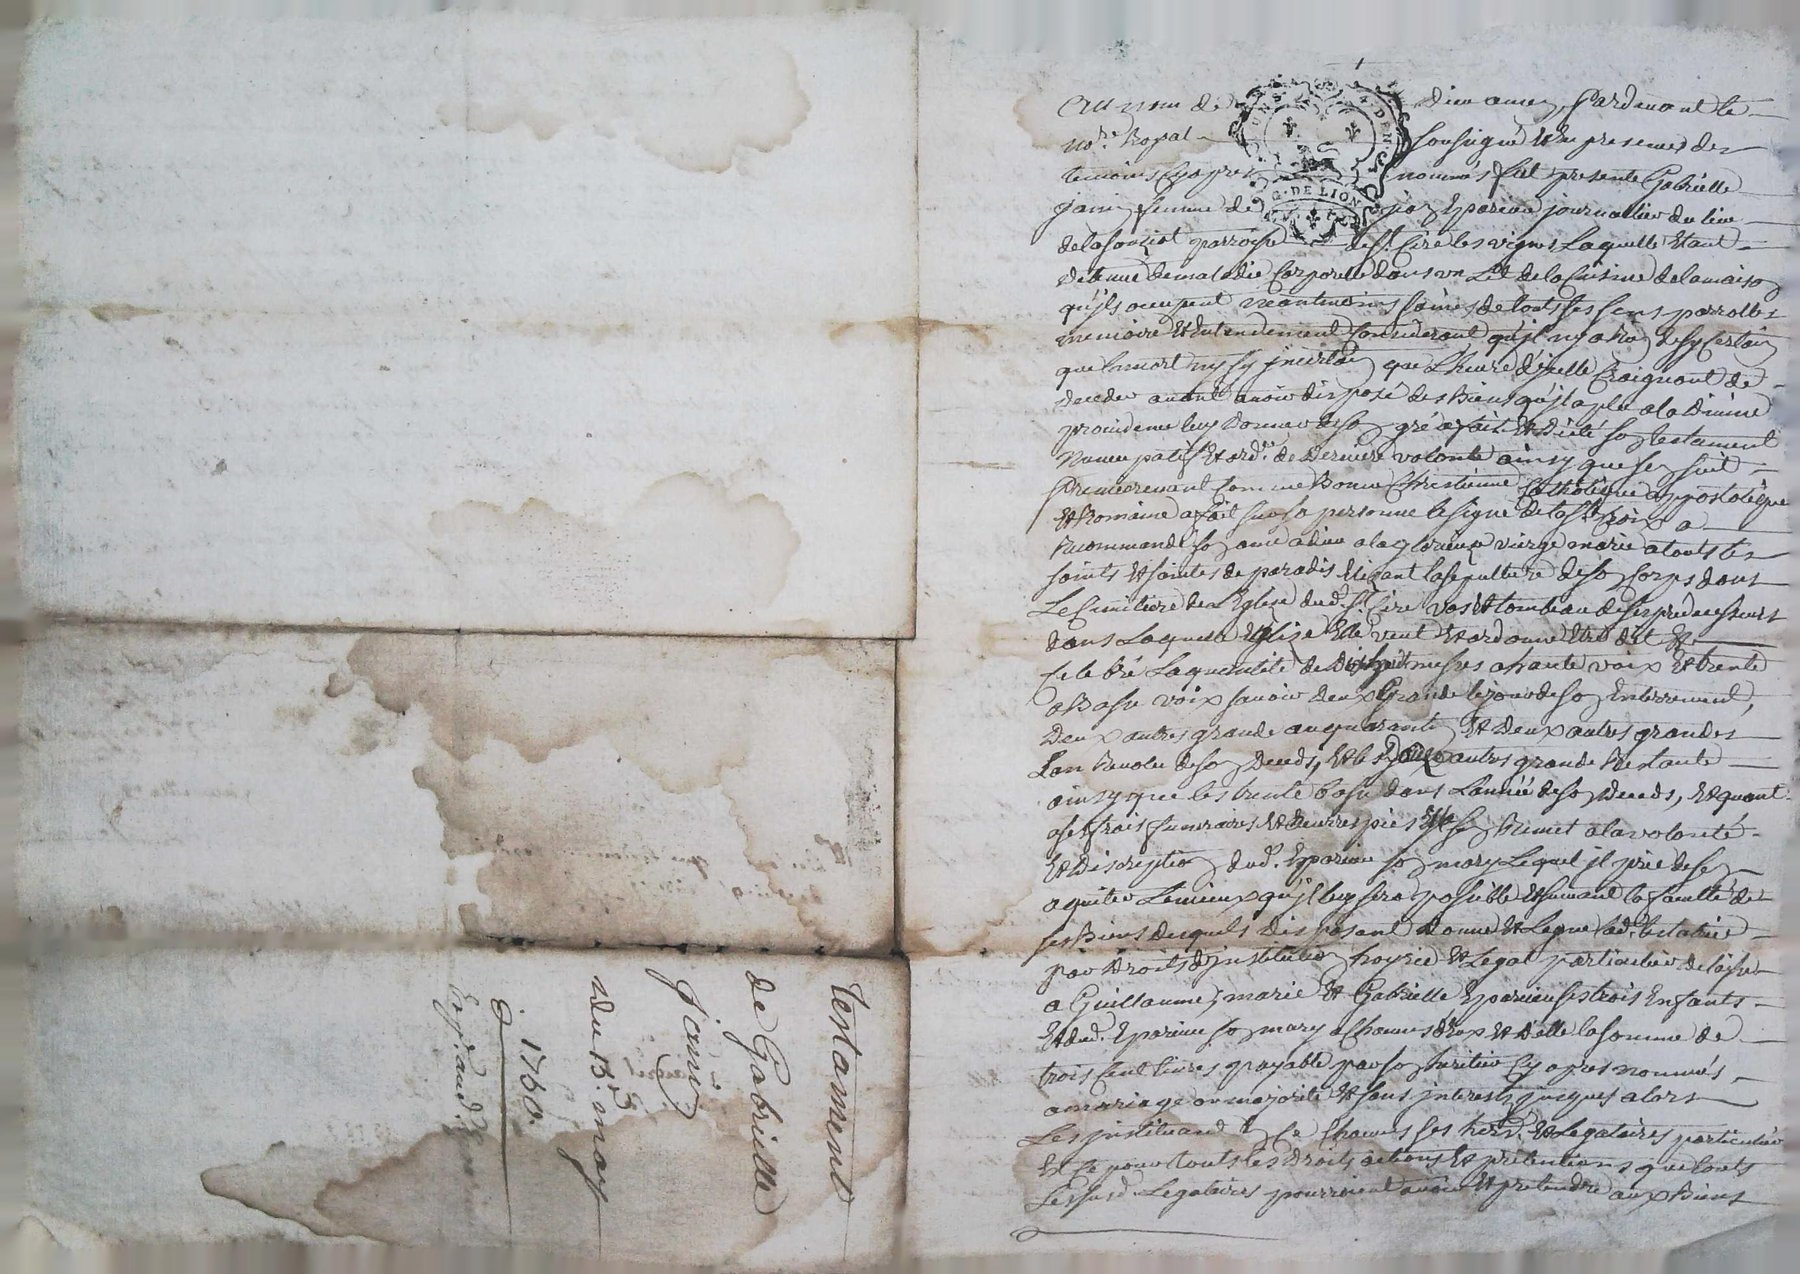 Au nom de Dieu amen, Pardevant le
no.re Royal soussigné Et En presence des
temoins Cyapres nommés fut presente Gabrielle
Janin femme de Eparieu journalier du lieu
parroisse de St. Cire les vignes Laquelle Etant
detenue de maladie Corporelle dans un Lit de la Cuisine de la maison
qu'ils occupent neantmoins saine de touts ses sens parrolle
memoire Et Entendement Considerant qu'il ny a rien de sy Certain
que la mort ny sy jncertain que L'heure d'jcelle Craignant de
deceder avant avoir disposé des Biens qu'jl a plu a la Divine
providence luy Donner de son gré a fait Et Dicté son testament
Nuncupatif Et ord.re de Derniere volonté ainsy que sen suit
Premierement Comme Bonne Chrestienne Catholique appostolique
Et Romaine a fait sur sa personne le signe de la Ste Croix a
Recommandé son ame a dieu a la glorieuse vierge marie a touts les
saints Et saintes de paradis Elizant la sepulture de son Corps dans
Le Cimitiere de L'Eglise dud. St. Cire vas Et tombeau de ses predecesseurs
dans Laquelle Eglise Elle veut Et ordonne Etre dit Et
Celebré La quantité de messes a haute voix Et trente
a Basse voix savoir deux Grande le jour de son Enterrement,
Deux autres grande au quarante Et Deux autres grandes
Lan Revolu de son Deceds, Et les autres grande Restante
ainsy que les trente basse dans L'année de son Deceds, Et quant
a ses frais funeraires Et oeuvres pies Elle sen Remet a la volonté
Et Discreption dud. Eparieu son mary Lequel jl prie de sen
aquiter Le mieux qu'jl luy sera possible Et suivant la faculté de
ses Biens desquels disposant donne Et Legue lad. testatrice
par droits d'jnstitution hoyrie Et Legat particulier delaisse
a Guillaume, marie Et Gabrielle Eparieu ses trois Enfants
Et dud. Eparieu son mary a Chacuns d'Eux Et d'elle la somme de
trois Cent livres payable par son heritier Cy apres nommés
a mariage ou majorité Et sans jnterests jusques alors
Les jnstituant En Ce Chacuns ses herit. Et Legataires particulier
Et Ce pour touts les droits actions Et pretentions que touts
Lesusd. Legataires pourroient avoir Et pretendre aux Biens
G. DE LION
Testament
de Gabrielle
Janin
Du 13. may
1760.